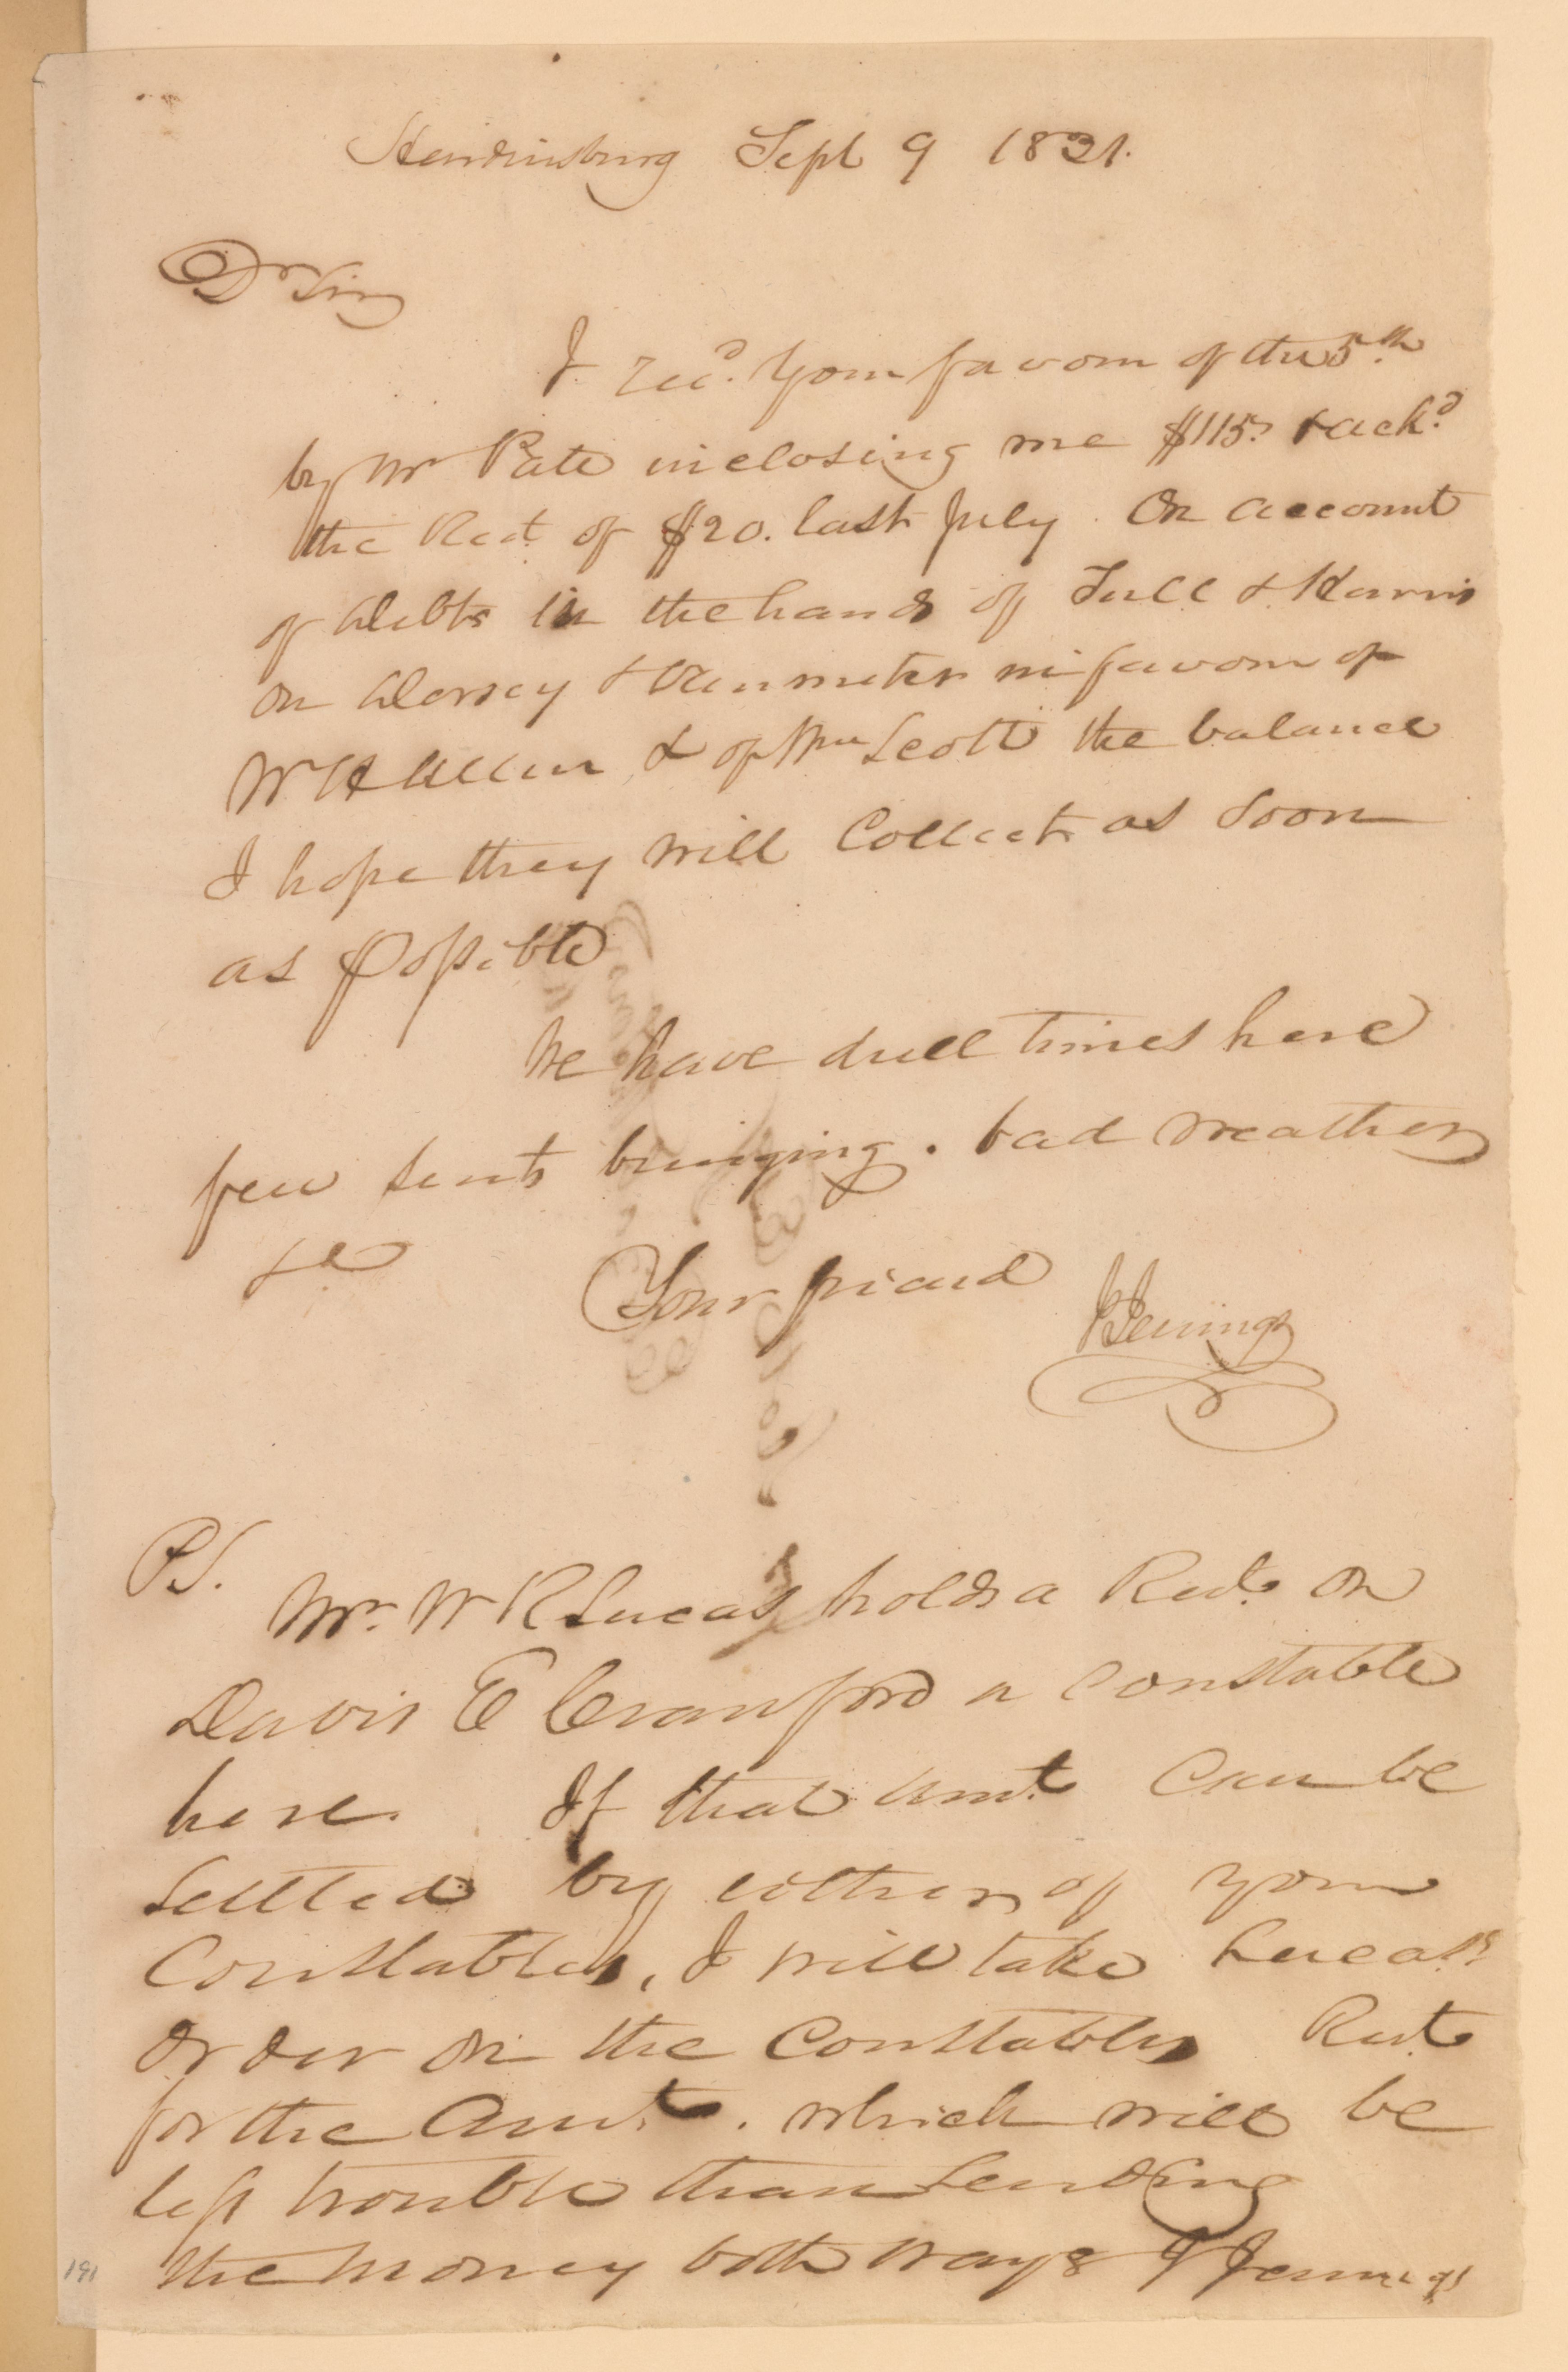 Hardinsburg Sept 9 1831.
Dr Sir
I recd. your favour of the 5th
by Mr Pate inclosing me $115. & ackd.
the Rect. of $20. last July. On account
of Debts in the hands of Tull & Harris
on Dorsey & Vanmeter in favour of
W H Allen & of Wm Scott the balance
I hope they will Collect as soon
as Possible
We have dull times here
few bringing. bad weather
&c Your friend JJennings
P.S.
Mr. W R Lucas holds a Rect. on
Davis E Crawford a Constable
here. If that amt. Can be
Settled by either of your
Constables, I will take Lucas's
order on the Constables Rect.
for the Amt. which will be
less trouble than sending
the money both ways JJennings
191